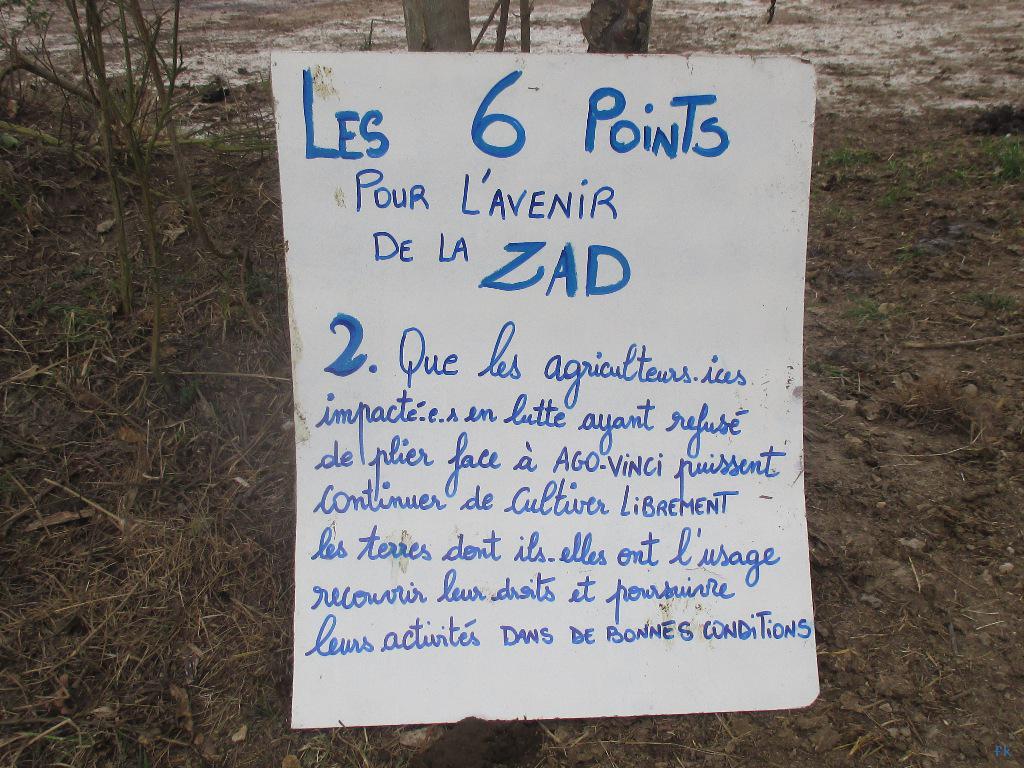 LES 6 POINTS
POUR L'AVENIR
DE LA ZAD
2. Que les agriculteurs.ices
impacté.e.s en lutte ayant refusé
de plier face à AGO-VINCI puissent
continuer de cultiver LIBREMENT
les terres dont ils.elles ont l'usage
recouvrir leur droits et poursuivre
leurs activités DANS DE BONNES CONDITIONS
fk